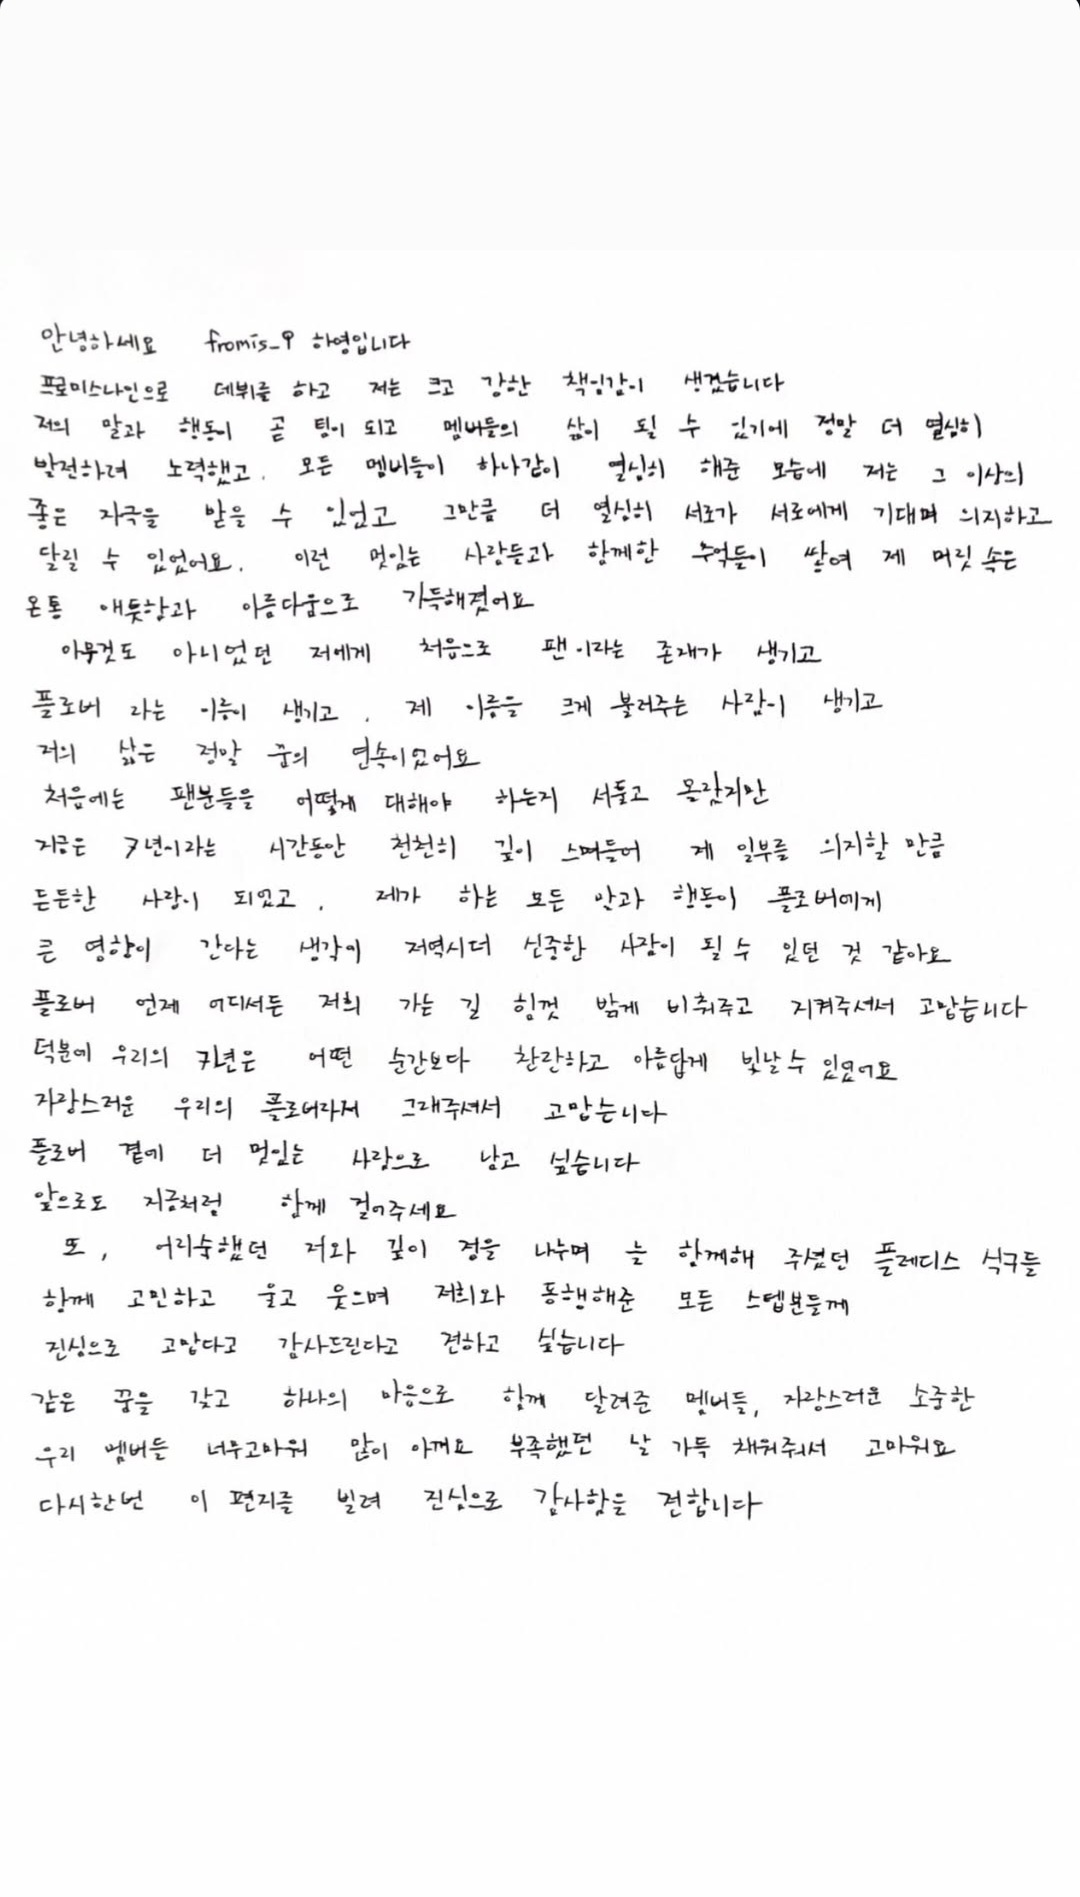 안녕하세요 fromis_9 하영입니다
프로미스나인으로 데뷔를 하고 저는 크고 강한 책임감이 생겼습니다
저의 말과 행동이 곧 팀이 되고 멤버들의 삶이 될 수 있기에 정말 더 열심히
발전하려 노력했고. 모든 멤버들이 하나같이 열심히 해준 모습에 저는 그 이상의
좋은 자극을 받을 수 있었고 그만큼 더 열심히 서로가 서로에게 기대며 의지하고
달릴 수 있었어요. 이런 멋있는 사람들과 함께한 추억들이 쌓여 제 머릿 속은
온통 애틋함과 아름다움으로 가득해졌어요
아무것도 아니었던 저에게 처음으로 팬 이라는 존재가 생기고
플로버 라는 이름이 생기고, 제 이름을 크게 불러주는 사람이 생기고
저의 삶은 정말 꿈의 연속이었어요
처음에는 팬분들을 어떻게 대해야 하는지 서툴고 몰랐지만
지금은 7년이라는 시간동안 천천히 깊이 스며들어 제 일부를 의지할 만큼
든든한 사랑이 되었고, 제가 하는 모든 말과 행동이 플로버에게
큰 영향이 간다는 생각에 저역시더 신중한 사람이 될 수 있던 것 같아요
플로버 언제 어디서든 저희 가는 길 힘껏 밝게 비춰주고 지켜주셔서 고맙습니다
덕분에 우리의 7년은 어떤 순간보다 찬란하고 아름답게 빛날 수 있었어요
자랑스러운 우리의 플로버라서 그래주셔서 고맙습니다
플로버 곁에 더 멋있는 사람으로 남고 싶습니다
앞으로도 지금처럼 함께 걸어주세요
또, 어리숙했던 저와 깊이 정을 나누며 늘 함께해 주셨던 플레디스 식구들
함께 고민하고 울고 웃으며 저희와 동행해준 모든 스텝분들께
진심으로 고맙다고 감사드린다고 전하고 싶습니다
같은 꿈을 갖고 하나의 마음으로 함께 달려준 멤버들, 자랑스러운 소중한
우리 멤버들 너무고마워 많이 아껴요 부족했던 날 가득 채워줘서 고마워요
다시한번 이 편지를 빌려 진심으로 감사함을 전합니다